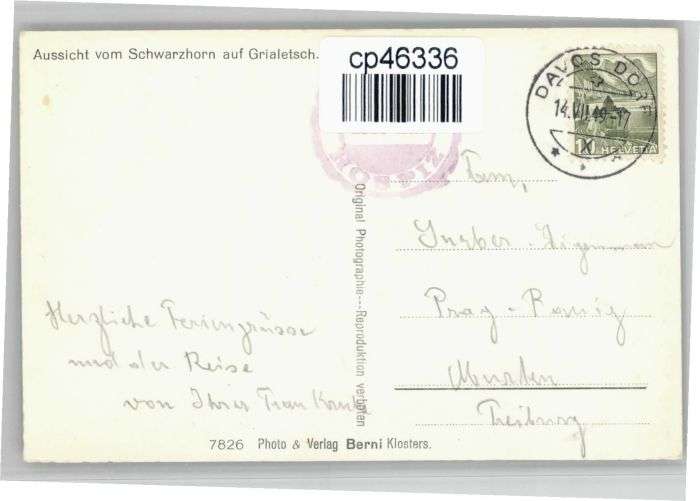 Aussicht vom Schwarzhorn auf Grialetsch.
cp46336
DAVOS DORF
14.VII.49-17
10 HELVETIA
HOSPIZ
Fam,
Gurber-
Prag-
Murten
Freiburg
Original Photographie---Reproduktion verboten
Herzliche Feriengrüsse
und der Reise
von Ihrer Frau
7826 Photo & Verlag Berni Klosters.